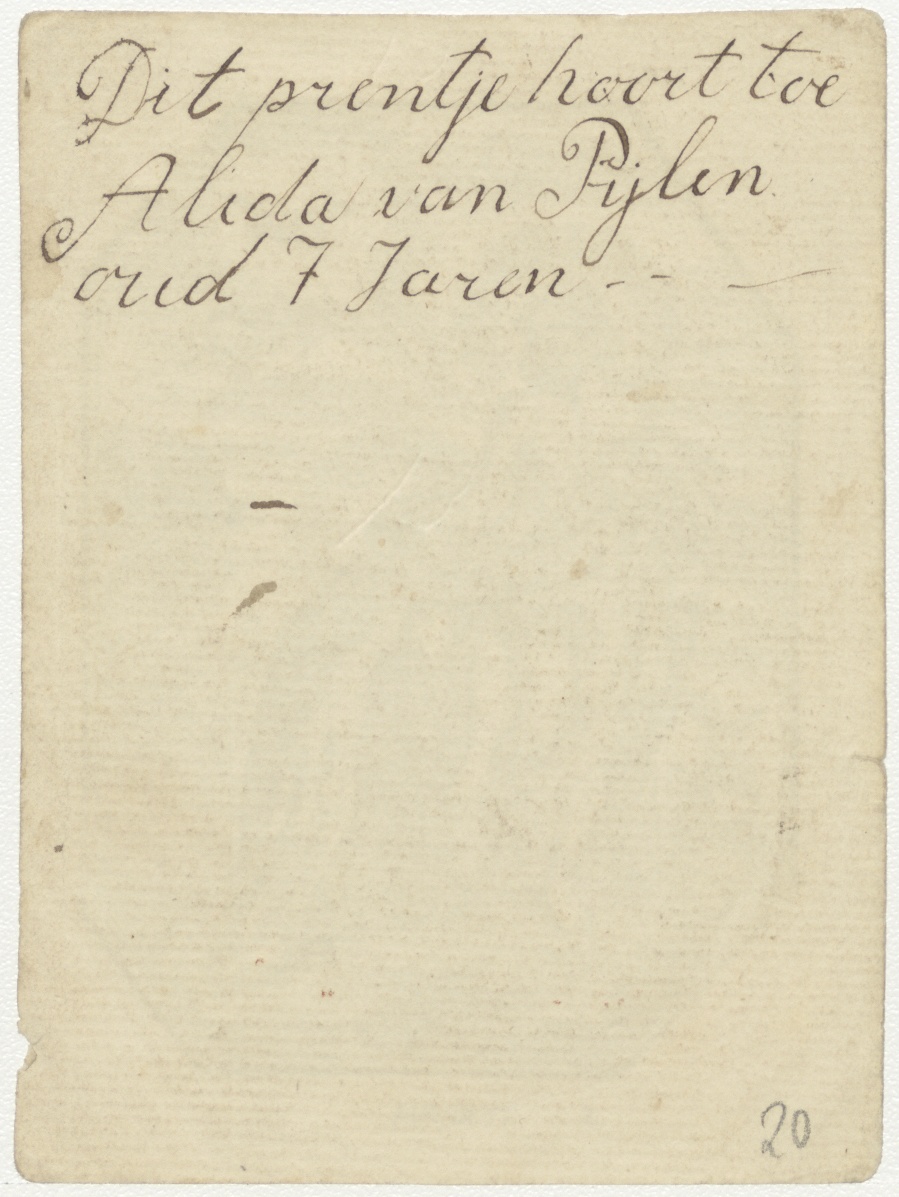 Dit prentje hoort toe
Alida van Pijlen
oud 7 Jaren -- —
20